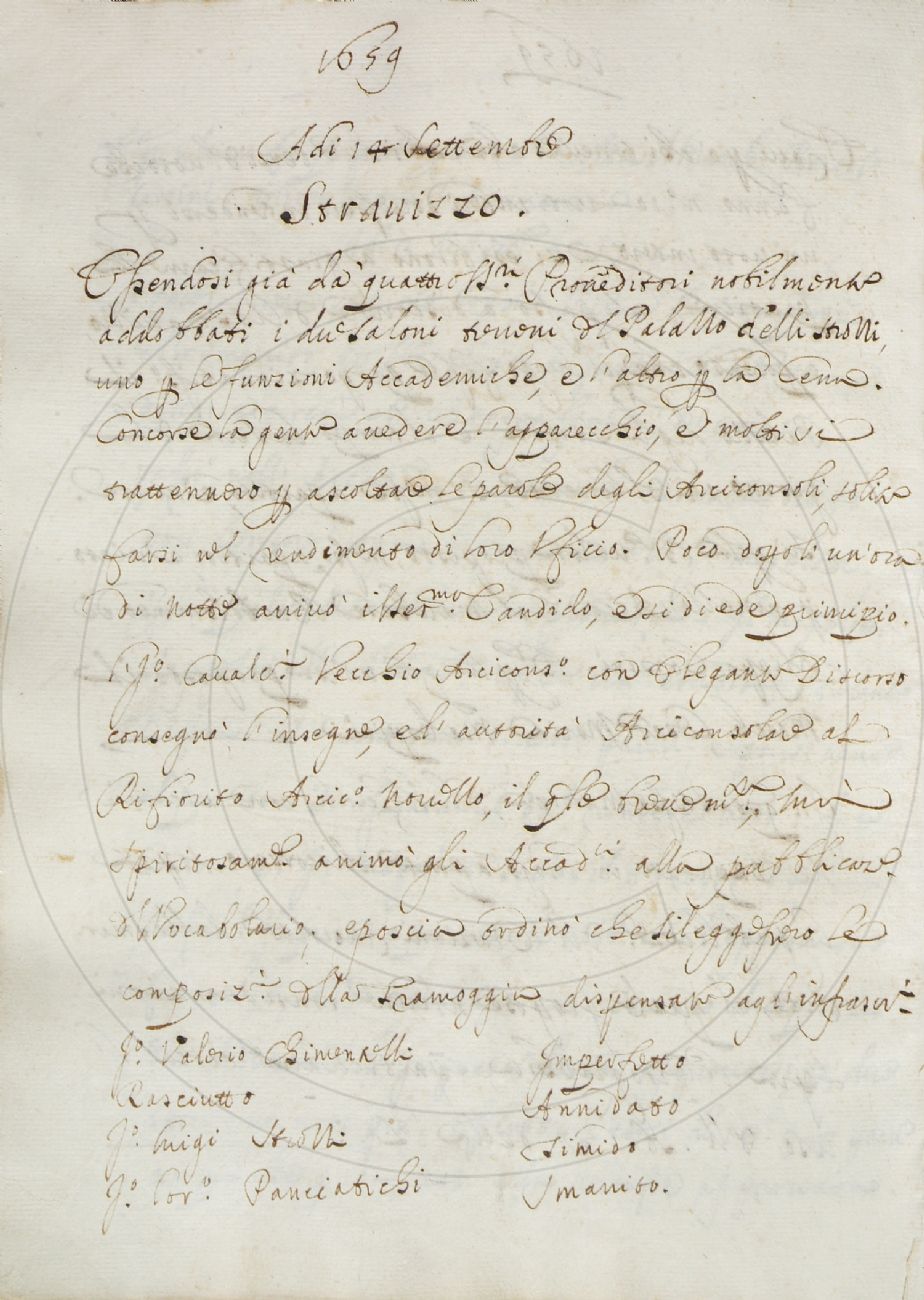 1659
Adi 14 Settembre
Stravizzo.
Essendosi già da' quattro SS.ri Proveditori nobilmente
addobbati i due Saloni terreni dl Palazzo delli Strozzi,
uno p le funzioni Accademiche, e l'altro p la Cena.
Concorse la gente a vedere l'apparecchio, e molti si
trattennero p ascoltare le parole degli Arciconsoli, solite
farsi nel rendimento di loro Uficio. Poco dopo li un'ora
di notte arrivò il Ser.mo Candido, e si diede principio.
l'Jo. Cavalc.i Vecchio Arcicons.o con elegante Discorso
consegnò l'insegne, e l'autorità Arciconsolare al
Rifiorito Arcic.o Novello, il qle brevem.te, mà
spiritosam.e animò gli Accad.ci alla pubblicaz.e
dl Vocabolario, e poscia ordinò che si leggessero le
composiz.i dlla Tramoggia dispensate agl'infrascr.i
Jo. Valerio Chimentelli
Imperfetto
Rasciutto
Annidato
Jo. Luigi Strozzi
Timido
Jo. Lor.o Panciatichi
Smarrito.